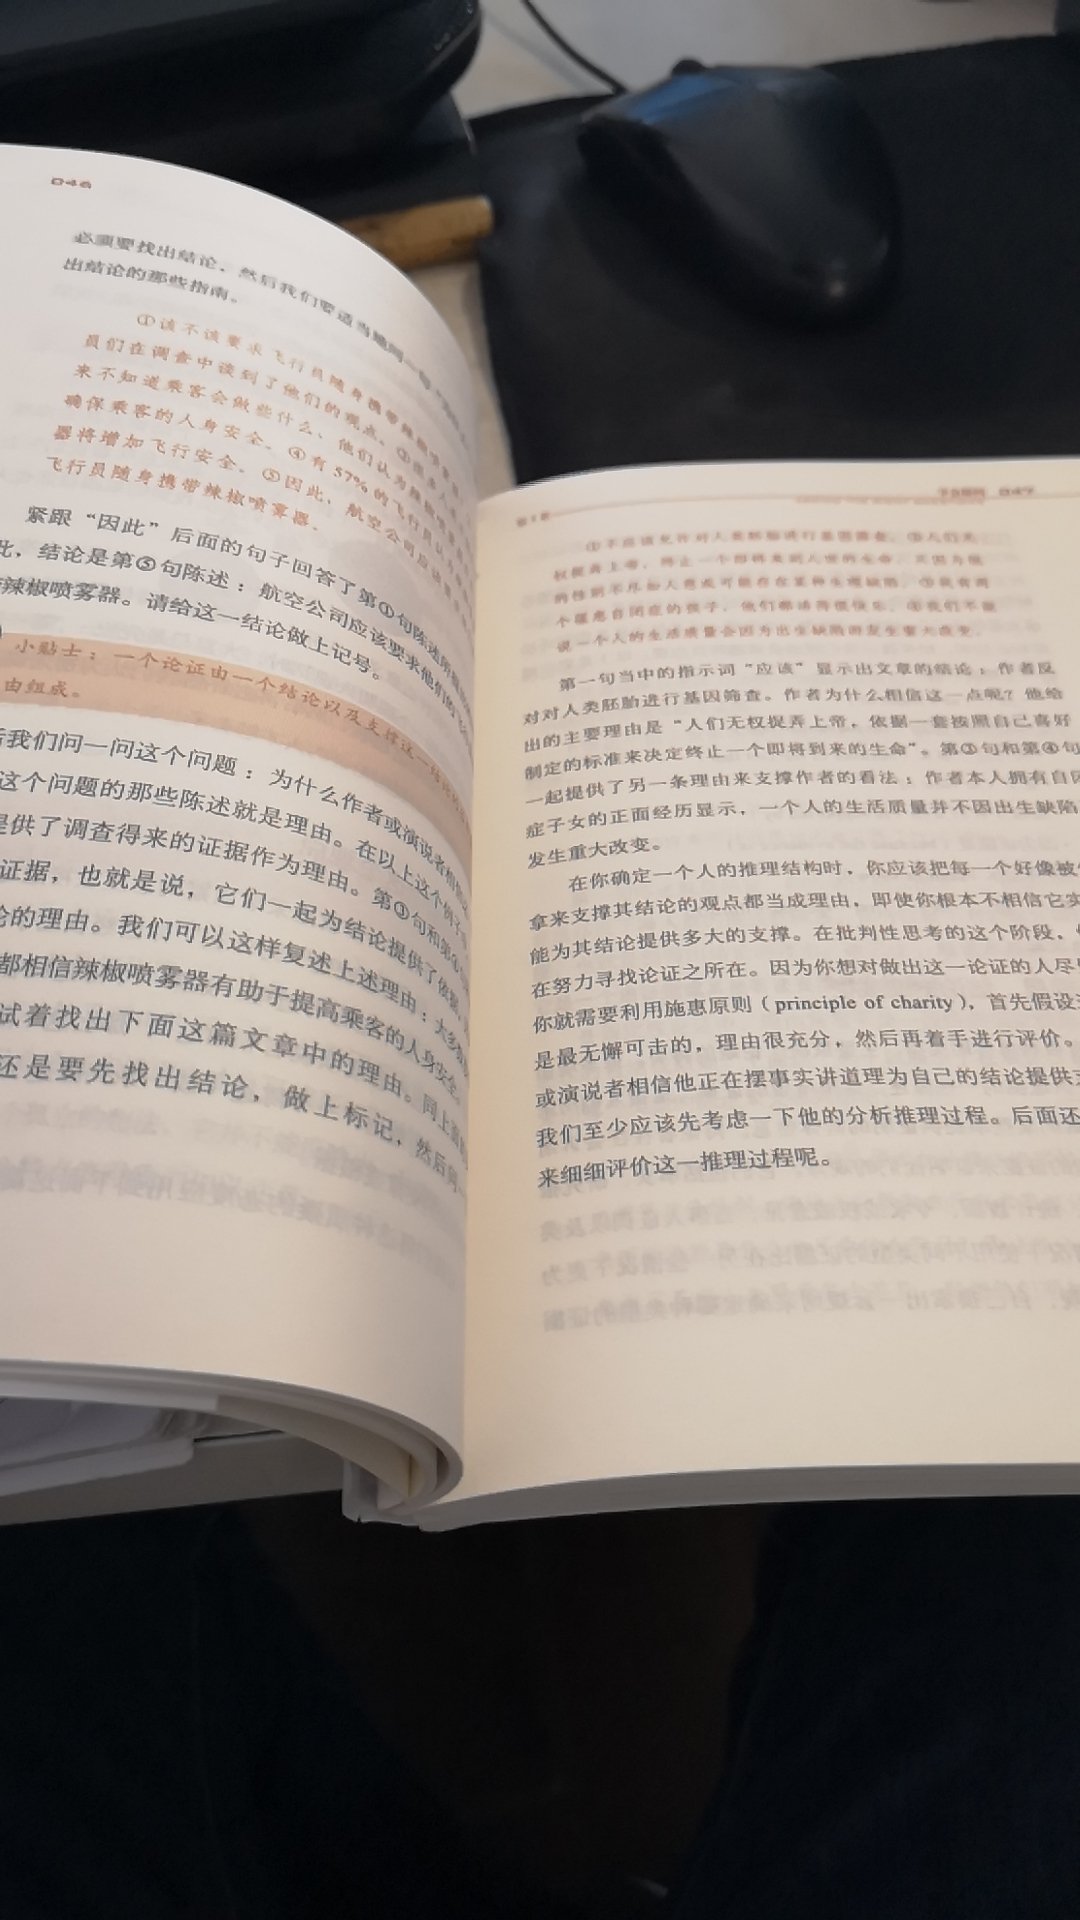 046
必须要找出结论，然后我们要适当地问一
出结论的那些指南。
①该不该要求飞行员随身携带辣椒喷雾
员们在调查中谈到了他们的观点。③很多人
来不知道乘客会做些什么，他们认为辣椒喷雾
确保乘客的人身安全。④有57%的飞行员认为
器将增加飞行安全。⑤因此，航空公司应该要
飞行员随身携带辣椒喷雾器。
紧跟“因此”后面的句子回答了第①句陈述所
此，结论是第⑤句陈述：航空公司应该要求他们的飞
辣椒喷雾器。请给这一结论做上记号。
小贴士：一个论证由一个结论以及支撑这一结论的
由组成。
后我们问一问这个问题：为什么作者或演说者相信
这个问题的那些陈述就是理由。在以上这个例子
提供了调查得来的证据作为理由。第③句和第④句
证据，也就是说，它们一起为结论提供了依据，
论的理由。我们可以这样复述上述理由：大多数
都相信辣椒喷雾器有助于提高乘客的人身安全。
试着找出下面这篇文章中的理由。同上面
还是要先找出结论，做上标记，然后问
047
①不应该允许对人类胚胎进行基因筛查。②人们无
权捉弄上帝，终止一个即将来到人世的生命，只因为他
的性别不尽如人意或可能存在某种生理缺陷。③我有两
个罹患自闭症的孩子，他们都活得很快乐。④我们不能
说一个人的生活质量会因为出生缺陷而发生重大改变。
第一句当中的指示词“应该”显示出文章的结论：作者反
对对人类胚胎进行基因筛查。作者为什么相信这一点呢？他给
出的主要理由是“人们无权捉弄上帝，依据一套按照自己喜好
制定的标准来决定终止一个即将到来的生命”。第③句和第④句
一起提供了另一条理由来支撑作者的看法：作者本人拥有自闭
症子女的正面经历显示，一个人的生活质量并不因出生缺陷
发生重大改变。
在你确定一个人的推理结构时，你应该把每一个好像被
拿来支撑其结论的观点都当成理由，即使你根本不相信它
能为其结论提供多大的支撑。在批判性思考的这个阶段，
在努力寻找论证之所在。因为你想对做出这一论证的人尽
你就需要利用施惠原则（principle of charity），首先假设
是最无懈可击的，理由很充分，然后再着手进行评价。
或演说者相信他正在摆事实讲道理为自己的结论提供
我们至少应该先考虑一下他的分析推理过程。后面还
来细细评价这一推理过程呢。